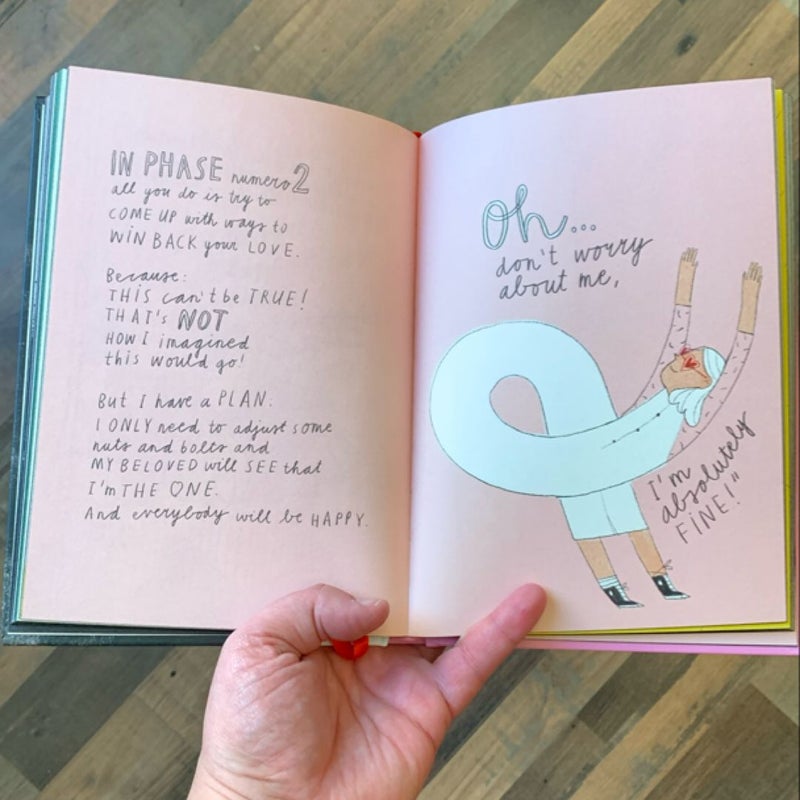 IN PHASE numero 2
all you do is try to
COME UP with ways to
WIN BACK your LOVE.
Because:
THIS can't be TRUE!
THAT's NOT
HOW I imagined
this would go!
But I have a PLAN.
I ONLY need to adjust some
nuts and bolts and
MY BELOVED will SEE that
I'm THE ONE.
And everybody will be HAPPY.
Oh...
don't worry
about me,
I'm
absolutely
FINE!"